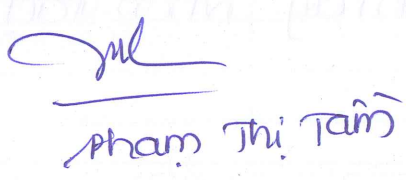 Phạm Thị Tâm